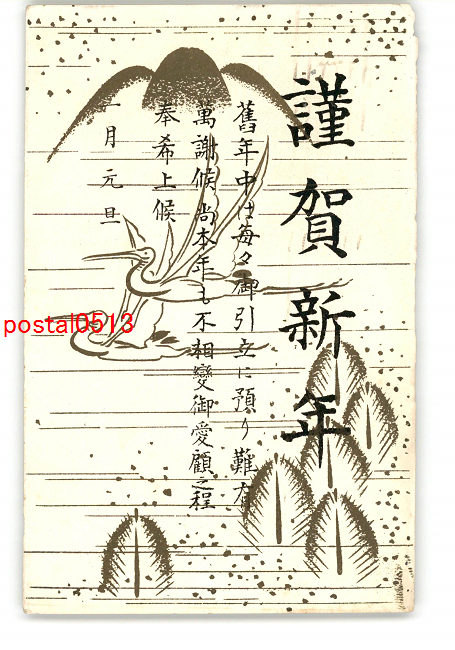 謹賀新年
舊年中は毎々御引立に預り難有
萬謝候尚本年も不相變御愛顧之程
奉希上候
一月元旦
postal0513